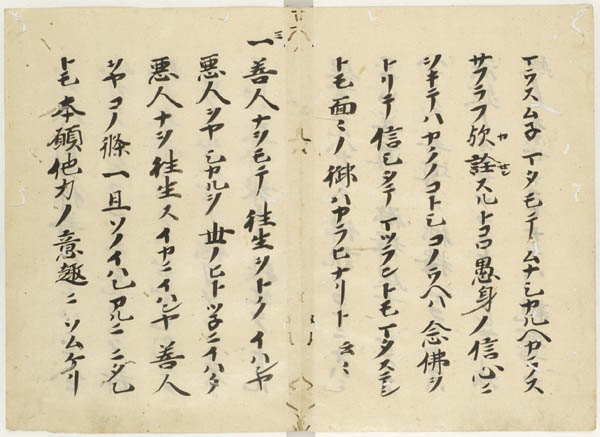 マフスムネイタモテムナシカルヘカラス
サフラフ歟詮スルトコロ愚身ノ信心ニ
ヲキテハカクノコトシコノウヘハ念佛ヲ
トリテ信シタテマツラントモマタステン
トモ面々ノ御ハカラヒナリト云々
一善人ナヲモテ往生ヲトクイハンヤ
悪人ヲヤシカルヲ世ノヒトツネニイハク
悪人ナヲ往生スイカニイハンヤ善人
ヲヤコノ條一旦ソノイハレアルニニタレ
トモ本願他力ノ意趣ニソムケリ